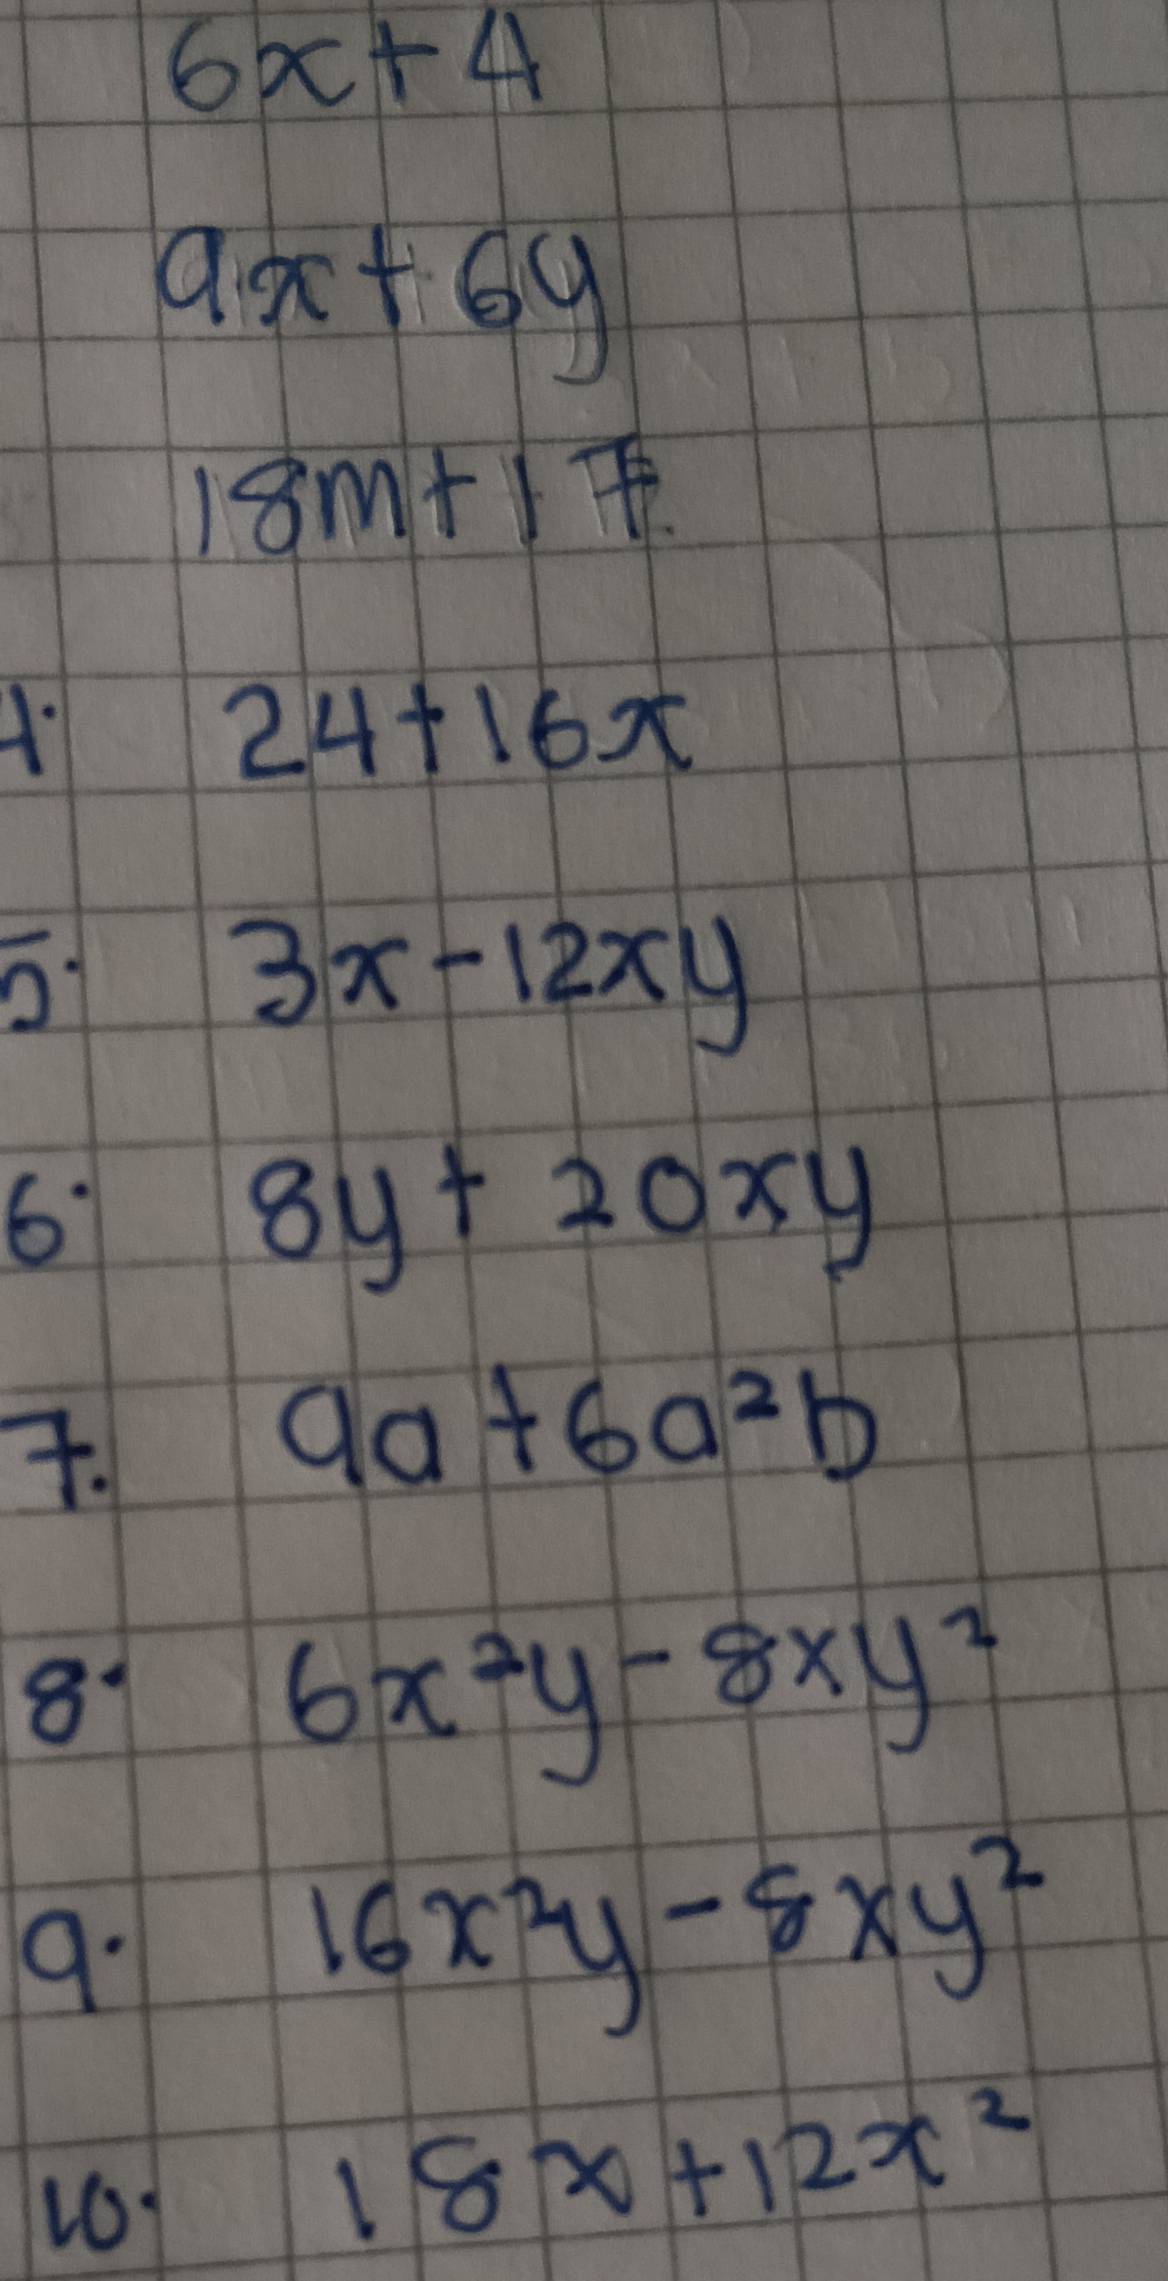 6x+4
9x+6y
18m+17.
4. 24+16x
5. 3x-12xy
6. 8y+20xy
7. 9a+6a²b
8. 6x²y-8xy²
9. 16x²y-8xy²
10. 18x+12x²